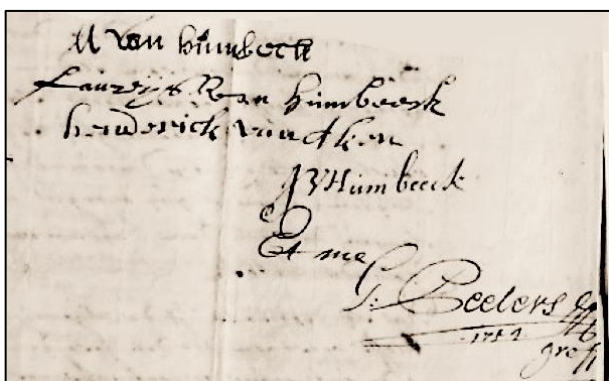 M van Humbeeck
Laureijs Van Humbeeck
henderick van Aken
J V Humbeeck
Et me
Peeters
1752